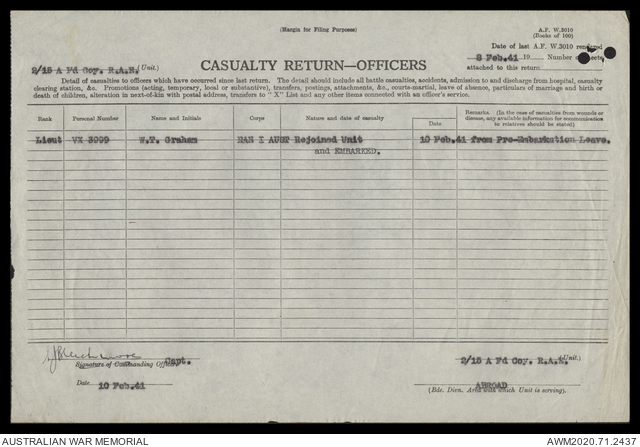 (Margin for Filing Purposes)
A.F. W.3010
(Books of 100)
Date of last A.F. W.3010 rendered
2/15 A Fd Coy. R.A.E. (Unit.)
8 Feb. 41 19 Number of
CASUALTY RETURN—OFFICERS
attached to this return
Detail of casualties to officers which have occurred since last return. The detail should include all battle casualties, accidents, admission to and discharge from hospital, casualty
clearing station, &c. Promotions (acting, temporary, local or substantive), transfers, postings, attachments, &c., courts-martial, leave of absence, particulars of marriage and birth or
death of children, alteration in next-of-kin with postal address, transfers to "X" List and any other items connected with an officer's service.
Rank Personal Number Name and Initials Corps Nature and date of casualty Date Remarks. (In the case of casualties from wounds or
disease, any available information for communication
to relatives should be stated)
Lieut VX 3099 W.T. Graham AUST Rejoined Unit 10 Feb. 41 from Pre-Embarkation Leave.
and EMBARKED.
Capt. 2/15 A Fd Coy. R.A.E. (Unit.)
Signature of Commanding Officer
Date 10 Feb. 41 ABROAD
(Bde. Divn. Area with which Unit is serving).
AUSTRALIAN WAR MEMORIAL AWM2020.71.2437